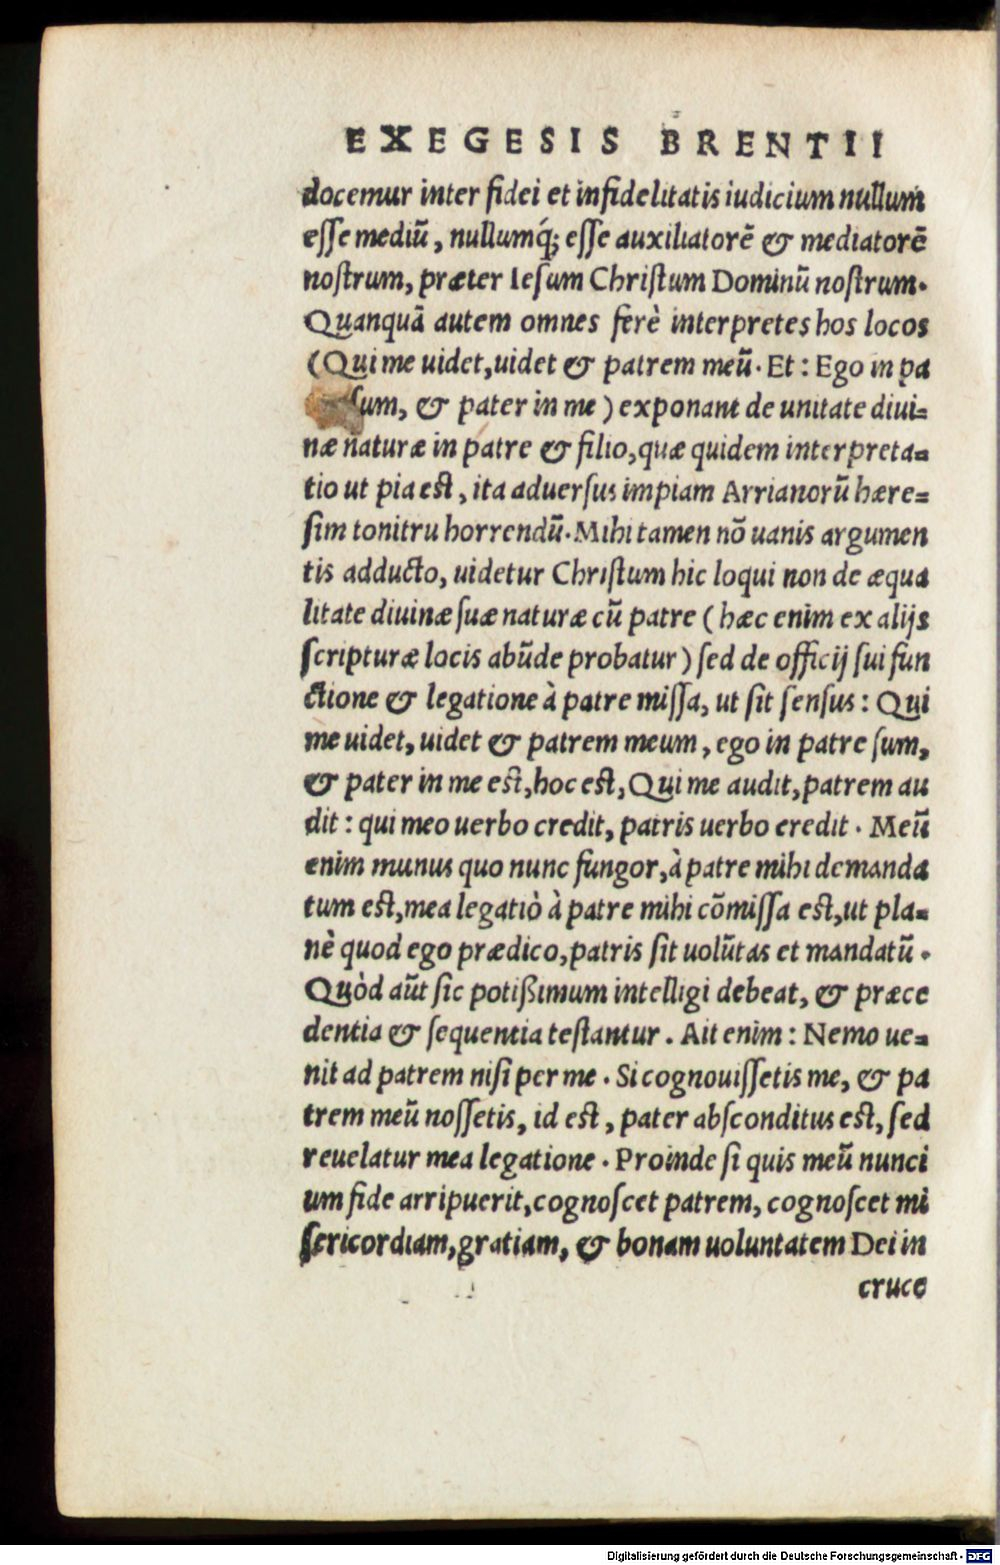 EXEGESIS BRENTII
docemur inter fidei et infidelitatis iudicium nullum
esse mediũ, nullumq́; esse auxiliatorẽ & mediatorẽ
nostrum, præter Iesum Christum Dominũ nostrum.
Quanquã autem omnes ferè interpretes hos locos
(Qui me uidet, uidet & patrem meũ. Et: Ego in pa
sum, & pater in me) exponant de unitate diui=
næ naturæ in patre & filio, quæ quidem interpreta=
tio ut pia est, ita aduersus impiam Arrianorũ hære=
sim tonitru horrendũ. Mihi tamen nõ uanis argumen
tis adducto, uidetur Christum hic loqui non de æqua
litate diuinæ suæ naturæ cũ patre (hæc enim ex alijs
scripturæ locis abũde probatur) sed de officij sui fun
ctione & legatione à patre missa, ut sit sensus: Qui
me uidet, uidet & patrem meum, ego in patre sum,
& pater in me est, hoc est, Qui me audit, patrem au
dit: qui meo uerbo credit, patris uerbo credit. Meũ
enim munus quo nunc fungor, à patre mihi demanda
tum est, mea legatiò à patre mihi cõmissa est, ut pla=
nè quod ego prædico, patris sit uolũtas et mandatũ.
Quòd aũt sic potißimum intelligi debeat, & præce
dentia & sequentia testantur. Ait enim: Nemo ue=
nit ad patrem nisi per me. Si cognouissetis me, & pa
trem meũ nossetis, id est, pater absconditus est, sed
reuelatur mea legatione. Proinde si quis meũ nunci
um fide arripuerit, cognoscet patrem, cognoscet mi
sericordiam, gratiam, & bonam uoluntatem Dei in
cruce
Digitalisierung gefördert durch die Deutsche Forschungsgemeinschaft - DFG